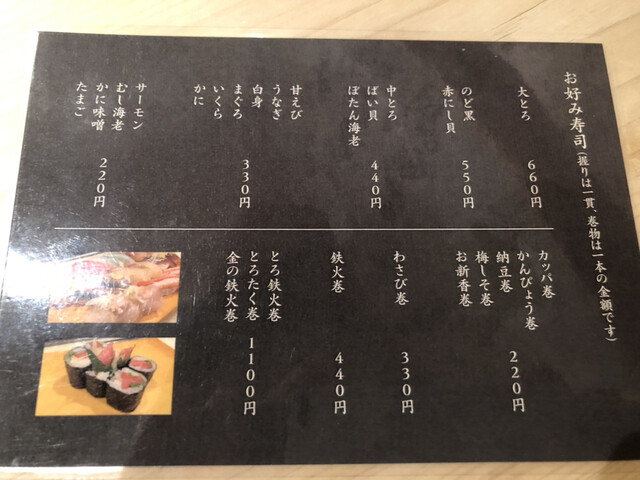 お好み寿司(握りは一貫、巻物は一本の金額です)
大とろ
660円
のど黒
赤にし貝
550円
中とろ
ばい貝
ぼたん海老
440円
甘えび
うなぎ
白身
まぐろ
いくら
かに
330円
サーモン
むし海老
かに味噌
たまご
220円
カッパ巻
かんぴょう巻
納豆巻
梅しそ巻
お新香巻
220円
わさび巻
330円
鉄火巻
440円
とろ鉄火巻
とろたく巻
金の鉄火巻
1100円